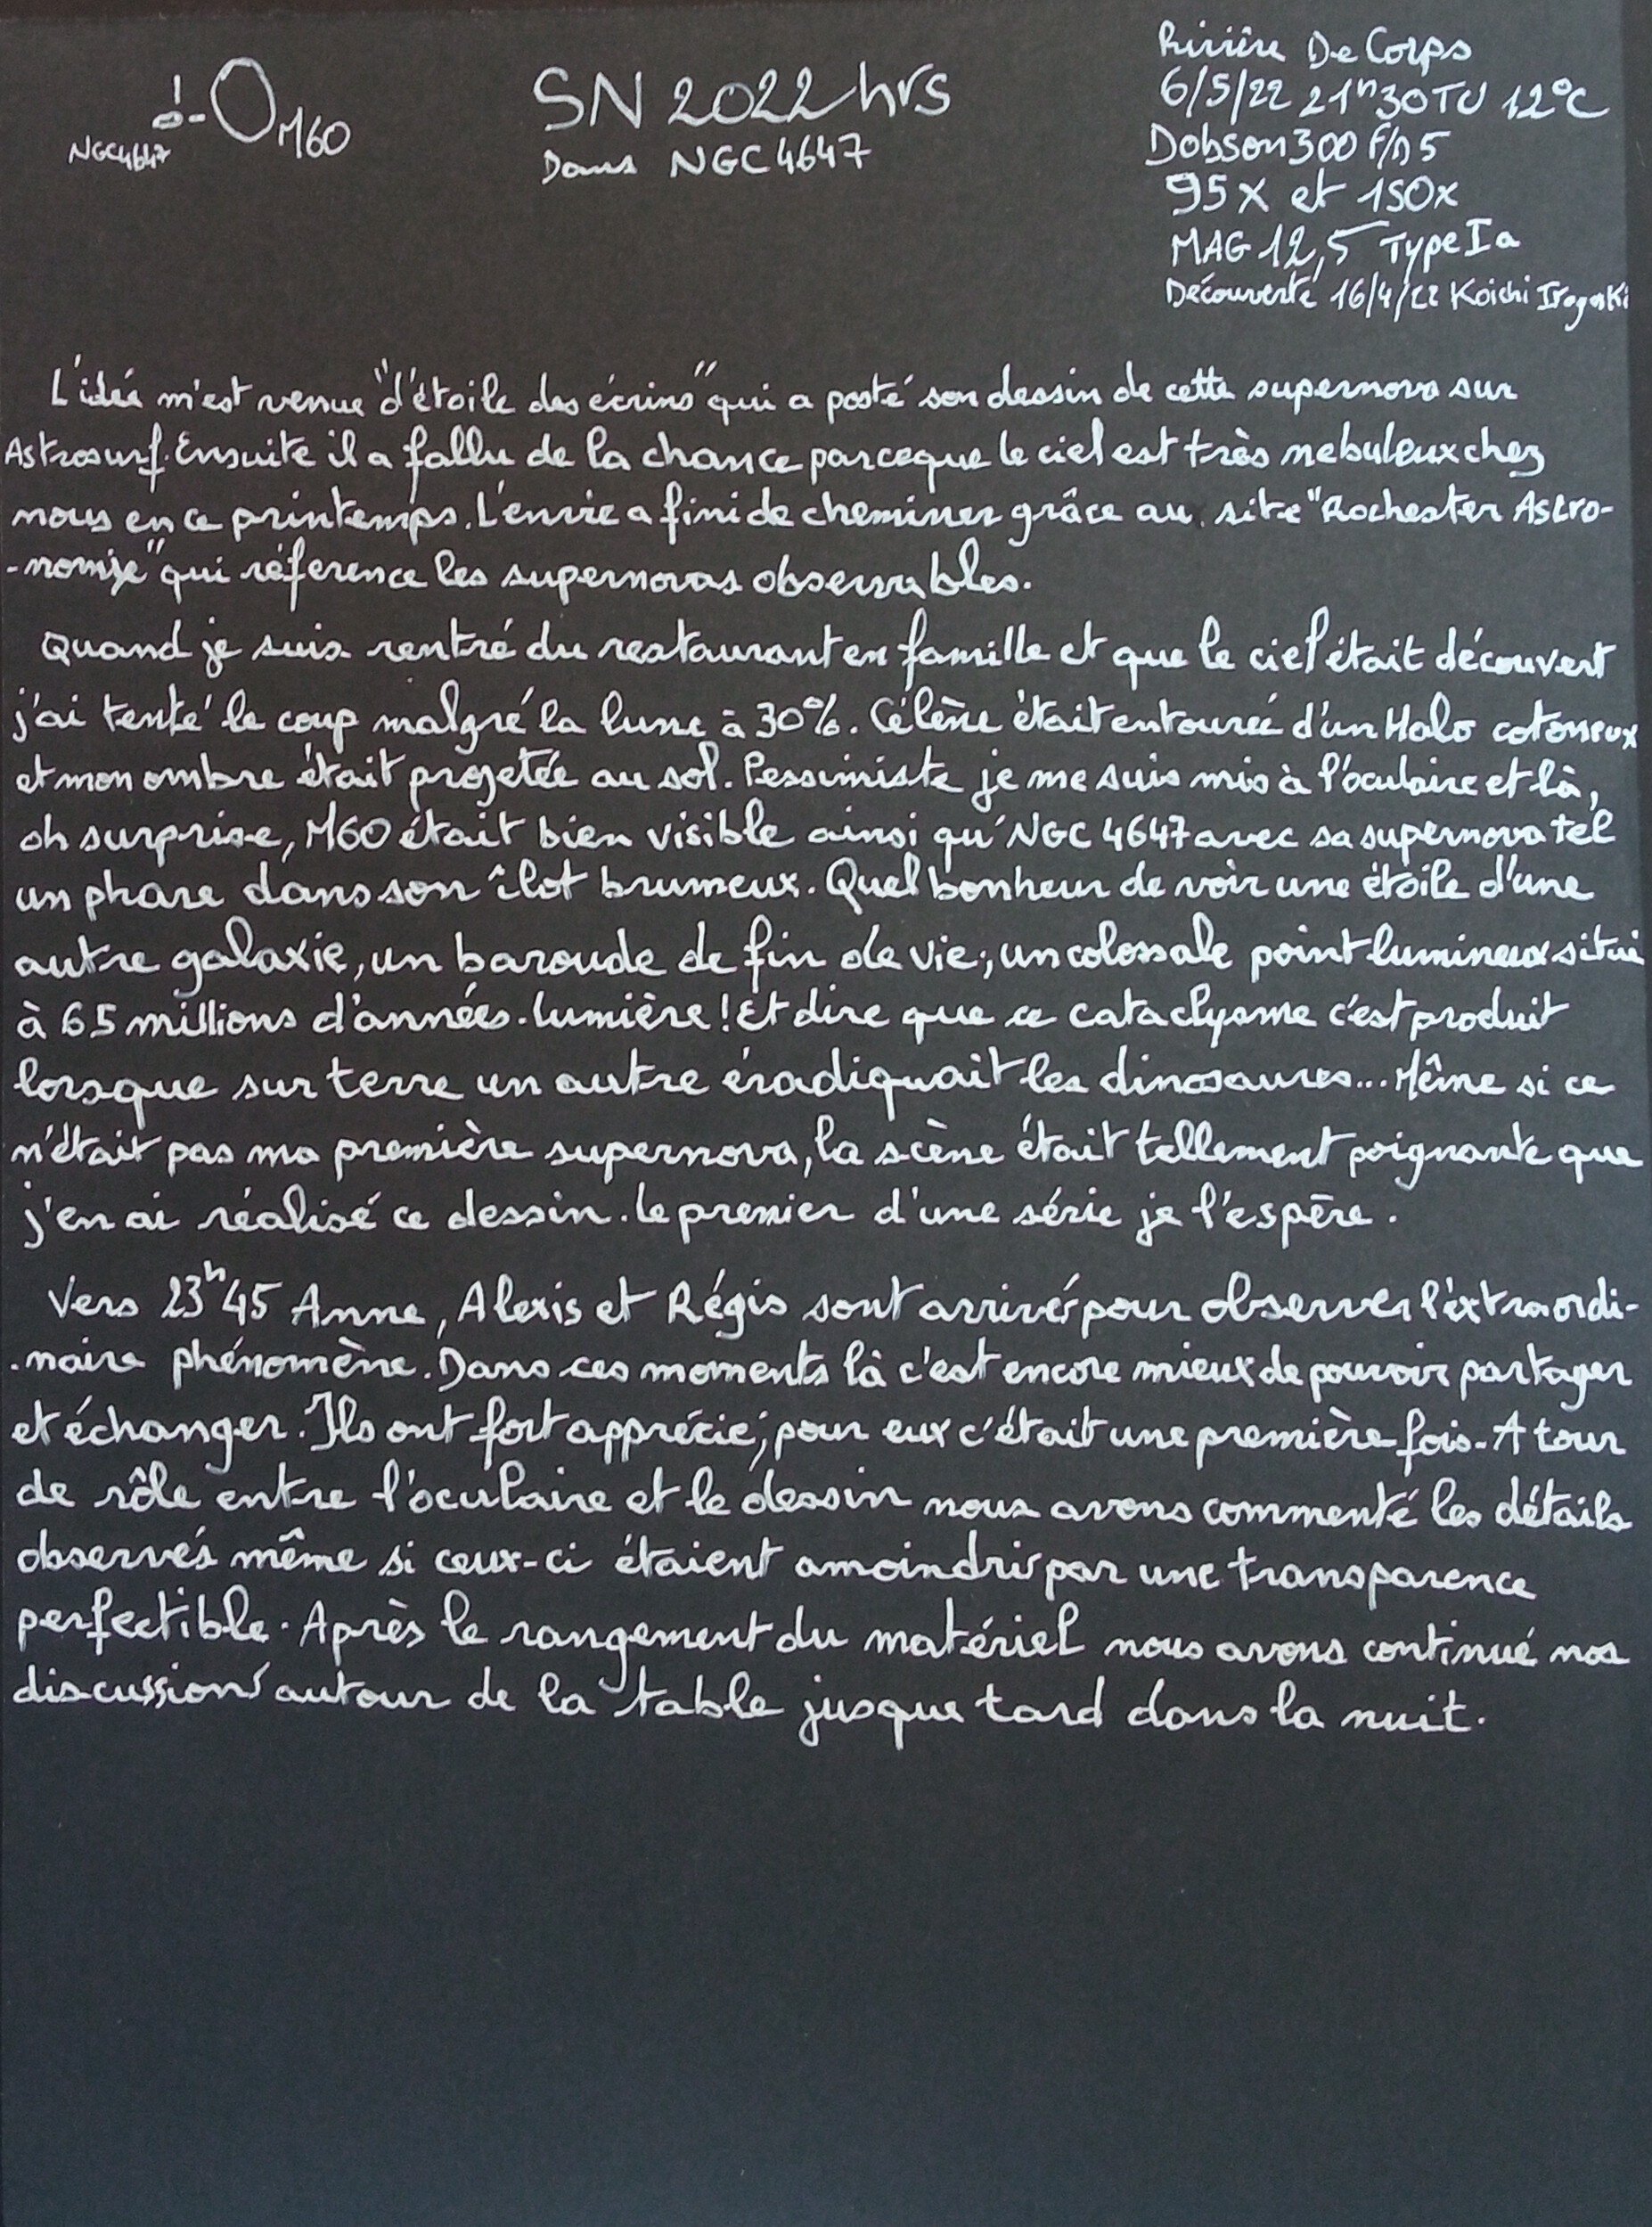 NGC4647
M60
SN 2022hrs
Dans NGC 4647
Rivière De Corps
6/5/22 21h30TU 12°C
Dobson 300 F/D 5
95x et 150x
MAG 12,5 Type Ia
Découverte 16/4/22 Koichi Itagaki
L'idée m'est venue "d'étoile des écrins" qui a posté son dessin de cette supernova sur
Astrosurf. Ensuite il a fallu de la chance parceque le ciel est très nebuleux chez
nous en ce printemps. L'envie a fini de cheminer grâce au site "Rochester Astro-
-nomie" qui réference les supernovas observables.
Quand je suis rentré du restaurant en famille et que le ciel était découvert
j'ai tenté le coup malgré la lune à 30%. Célène était entourée d'un Halo cotoneux
et mon ombre était projetée au sol. Pessimiste je me suis mis à l'oculaire et là,
oh surprise, M60 était bien visible ainsi qu'NGC 4647 avec sa supernova tel
un phare dans son îlot brumeux. Quel bonheur de voir une étoile d'une
autre galaxie, un baroude de fin de vie; un colossale point lumineux situé
à 65 millions d'années-lumière! Et dire que ce cataclysme c'est produit
lorsque sur terre un autre éradiquait les dinosaures... Même si ce
n'était pas ma première supernova, la scène était tellement poignante que
j'en ai réalisé ce dessin. Le premier d'une série je l'espère.
Vers 23h45 Anne, Alexis et Régis sont arrivés pour observer l'extraordi-
-naire phénomène. Dans ces moments là c'est encore mieux de pouvoir partager
et échanger. Ils ont fort apprécié; pour eux c'était une première fois. A tour
de rôle entre l'oculaire et le dessin nous avons commenté les détails
observés même si ceux-ci étaient amoindris par une transparence
perfectible. Après le rangement du matériel nous avons continué nos
discussions autour de la table jusque tard dans la nuit.